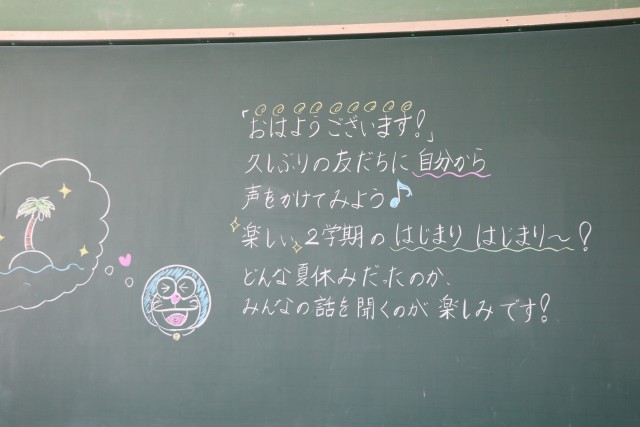 「おはようございます！」
久しぶりの友だちに 自分から
声をかけてみよう♪
楽しい 2学期の はじまり はじまり〜！
どんな夏休みだったのか、
みんなの話を聞くのが 楽しみです！